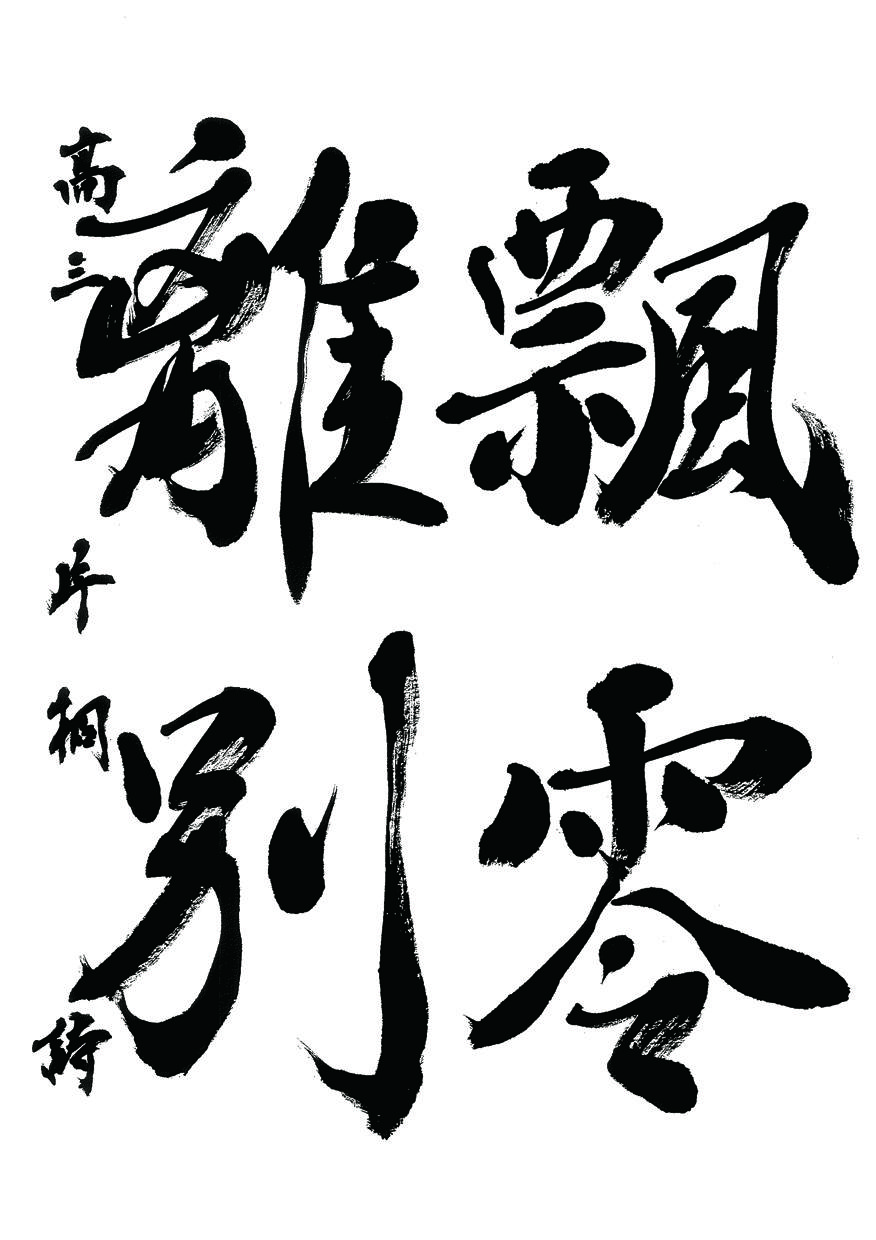 飄零
離別
高三 片桐詩